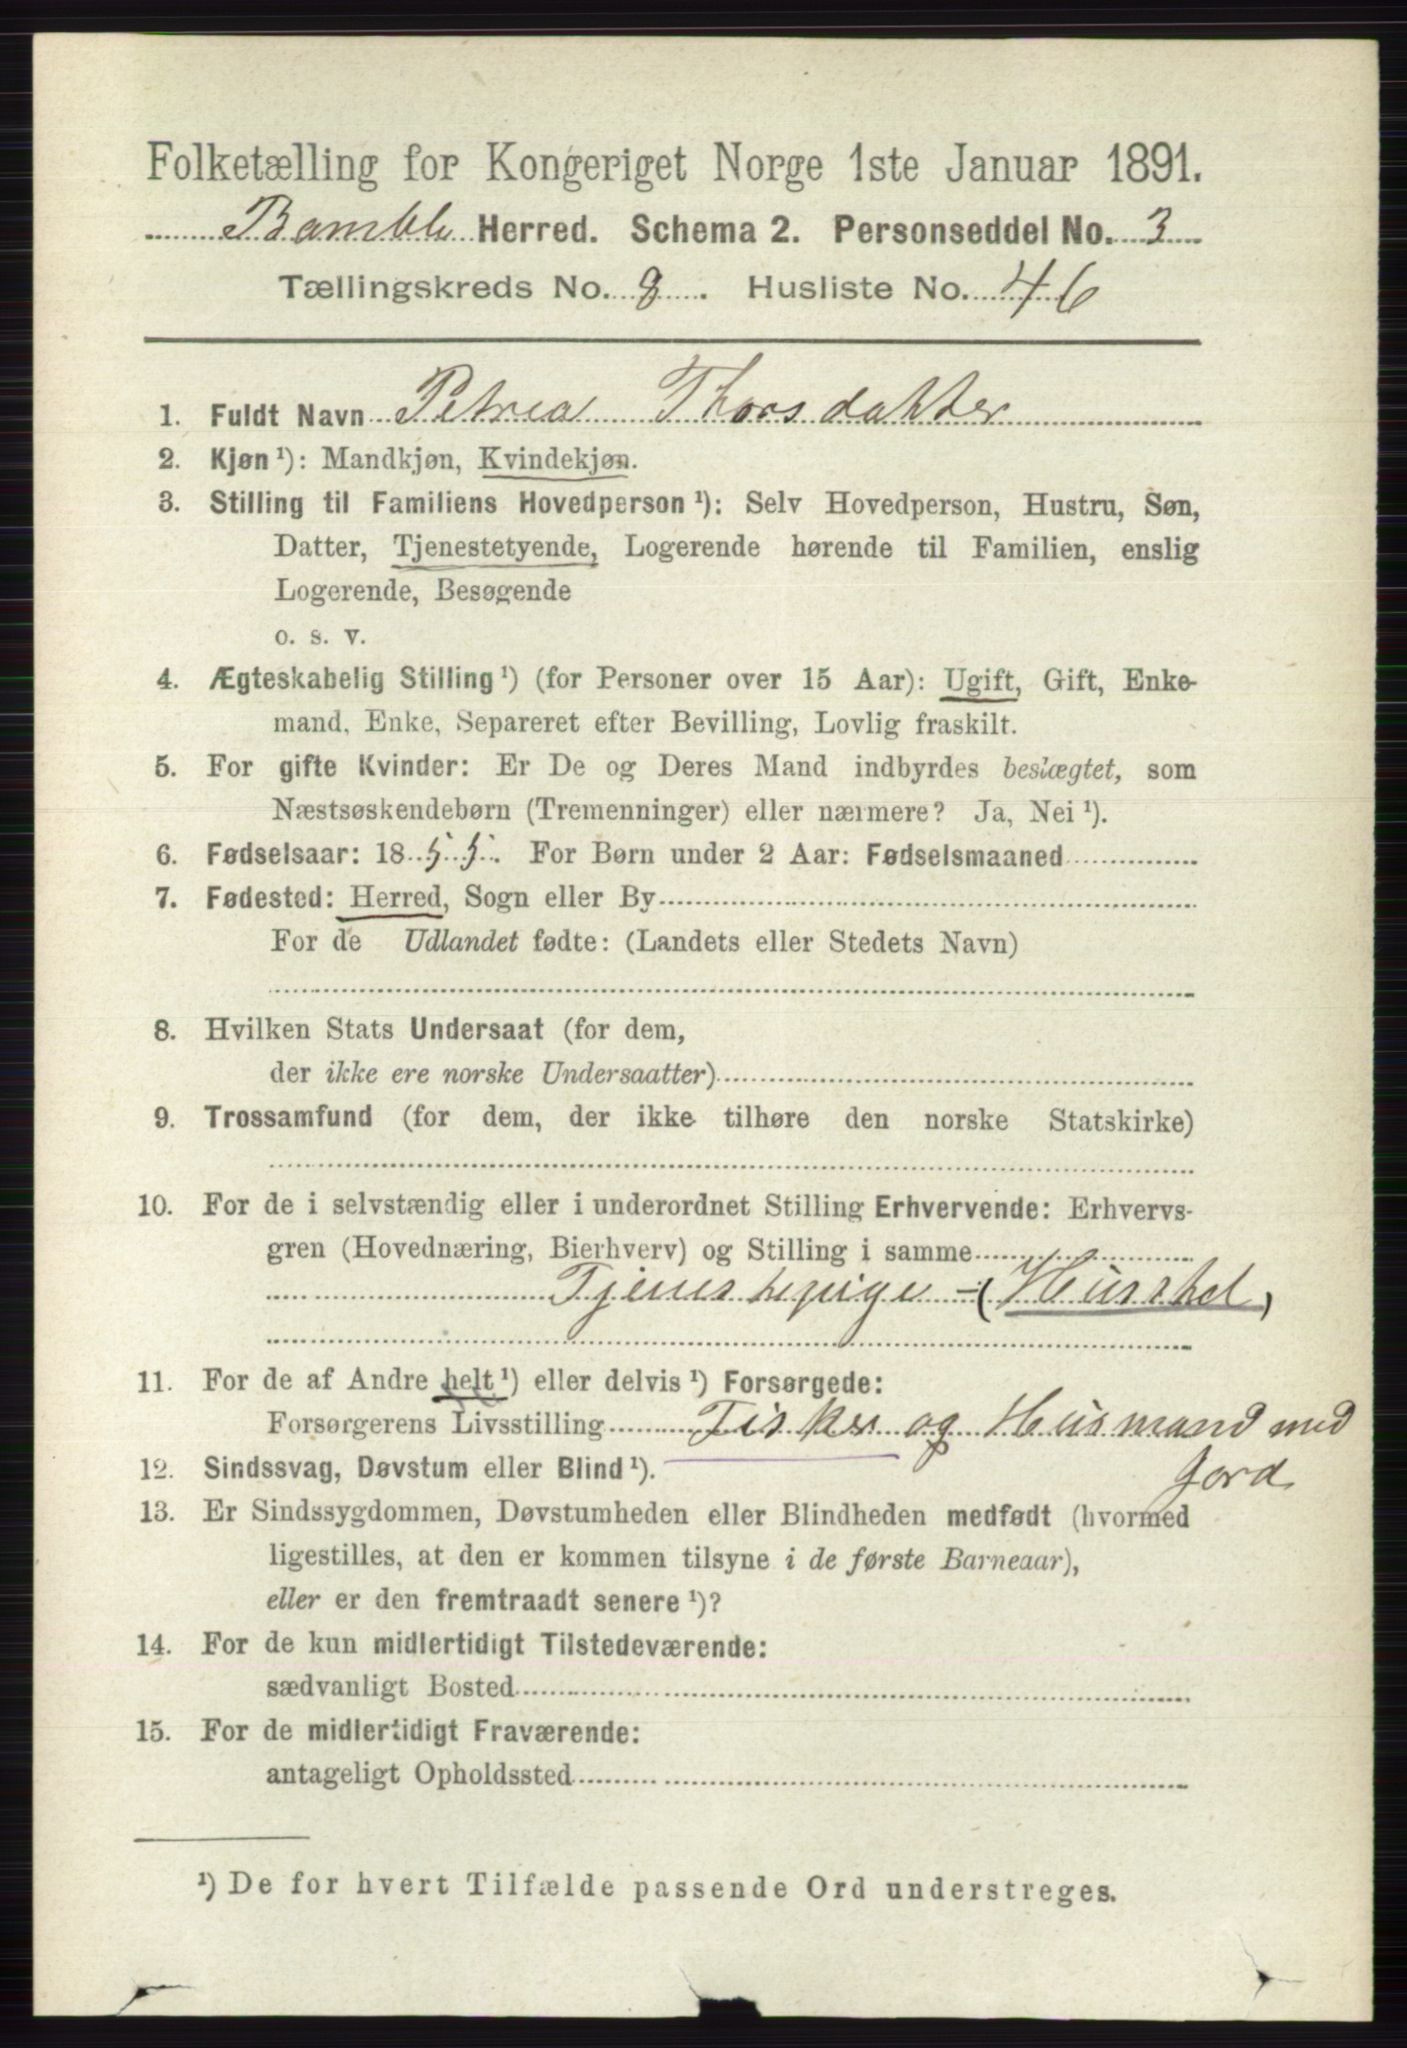 Folketælling for Kongeriget Norge 1ste Januar 1891.
Bamble Herred. Schema 2. Personseddel No. 3
Tællingskreds No. 8. Husliste No. 46
1. Fuldt Navn Petrea Thorsdatter
2. Kjøn ¹): Mandkjøn, Kvindekjøn.
3. Stilling til Familiens Hovedperson ¹): Selv Hovedperson, Hustru, Søn,
Datter, Tjenestetyende, Logerende hørende til Familien, enslig
Logerende, Besøgende
o. s. v.
4. Ægteskabelig Stilling ¹) (for Personer over 15 Aar): Ugift, Gift, Enke-
mand, Enke, Separeret efter Bevilling, Lovlig fraskilt.
5. For gifte Kvinder: Er De og Deres Mand indbyrdes beslægtet, som
Næstsøskendebørn (Tremenninger) eller nærmere? Ja, Nei ¹).
6. Fødselsaar: 1855. For Børn under 2 Aar: Fødselsmaaned
7. Fødested: Herred, Sogn eller By
For de Udlandet fødte: (Landets eller Stedets Navn)
8. Hvilken Stats Undersaat (for dem,
der ikke ere norske Undersaatter)
9. Trossamfund (for dem, der ikke tilhøre den norske Statskirke)
10. For de i selvstændig eller i underordnet Stilling Erhvervende: Erhvervs-
gren (Hovednæring, Bierhverv) og Stilling i samme
Tjenestepige - (Husstel)
11. For de af Andre helt ¹) eller delvis ¹) Forsørgede:
Forsørgerens Livsstilling Fisker og Husmand med
Jord
12. Sindssvag, Døvstum eller Blind ¹).
13. Er Sindssygdommen, Døvstumheden eller Blindheden medfødt (hvormed
ligestilles, at den er kommen tilsyne i de første Barneaar),
eller er den fremtraadt senere ¹)?
14. For de kun midlertidigt Tilstedeværende:
sædvanligt Bosted
15. For de midlertidigt Fraværende:
antageligt Opholdssted
¹) De for hvert Tilfælde passende Ord understreges.